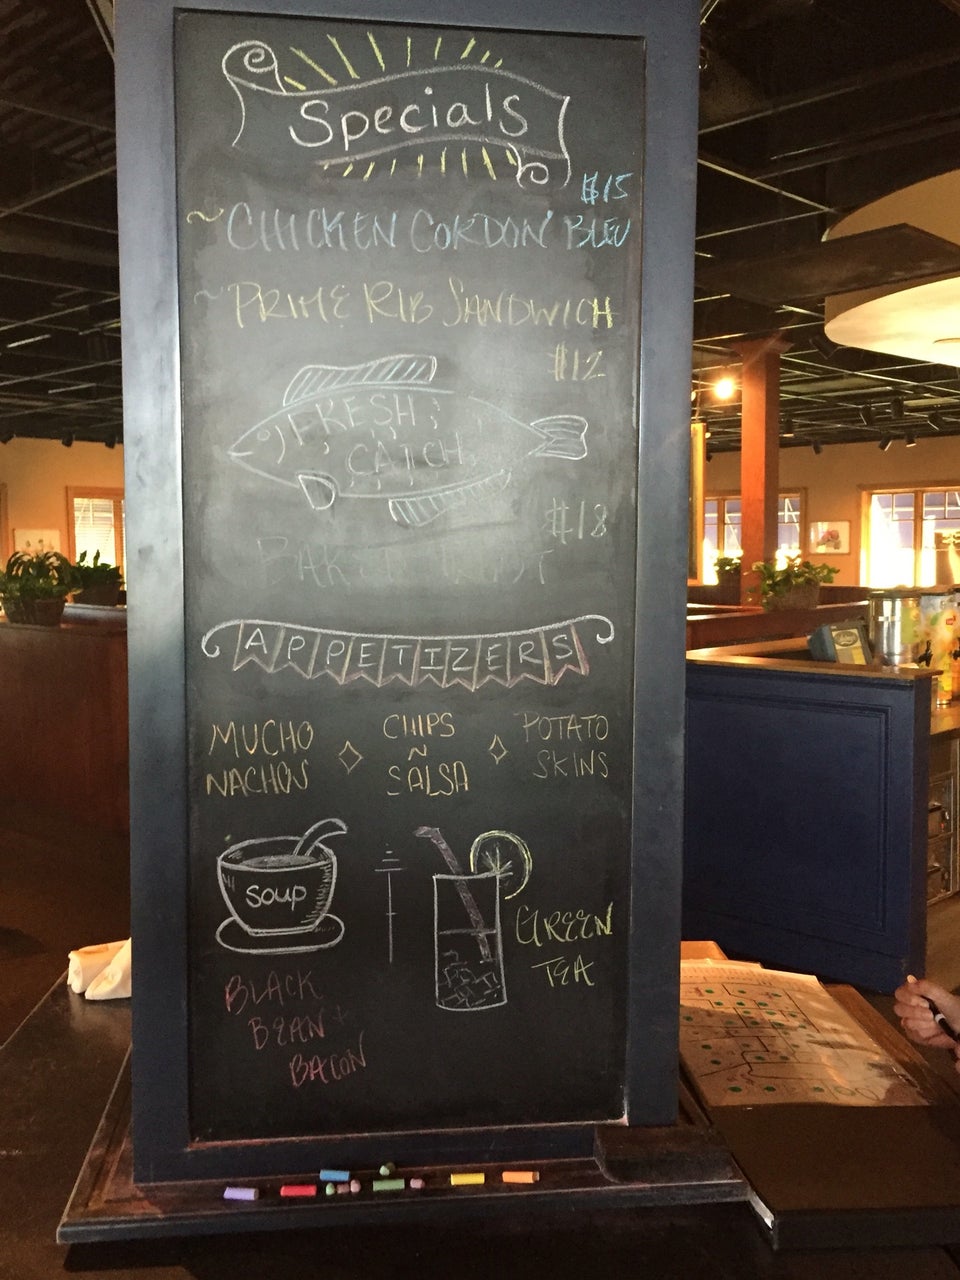 Specials
$15
~ CHICKEN CORDON BLEU
~ PRIME RIB SANDWICH
$12
FRESH
CATCH
$18
APPETIZERS
MUCHO
NACHOS
CHIPS
~
SALSA
POTATO
SKINS
soup
GREEN
TEA
BLACK
BEAN +
BACON